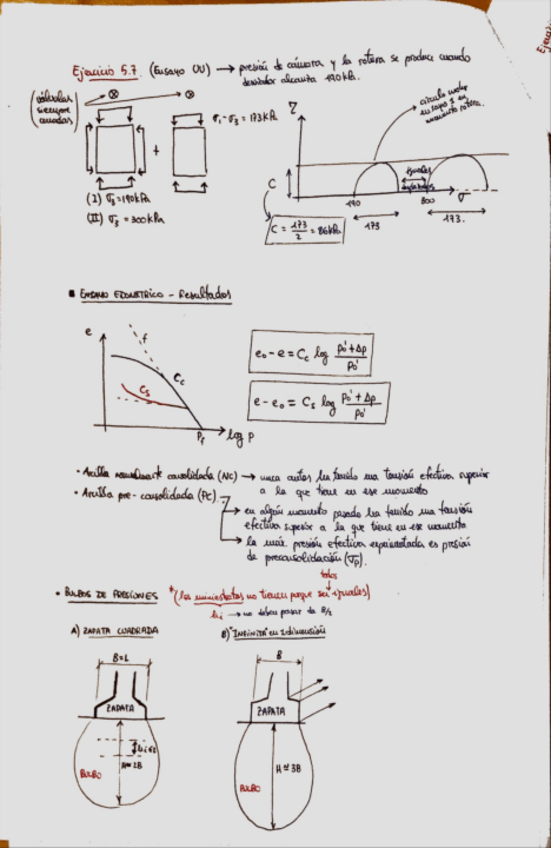 Ejercicio 5.7. (Ensayo UU) → presión de cámara y la rotura se produce cuando
desviador alcanza 190 kPa.
(válvulas
siempre
cerradas)
σ1 - σ3 = 173 kPa
+
(I) σ3 = 190 kPa
(II) σ3 = 300 kPa
τ
círculo mohr
ensayo I en
momento rotura.
C
iguales
190
300
σ
173
173.
C = 173/2 = 86 kPa
▪ ENSAYO EDOMÉTRICO - Resultados
e
f
Cc
Cs
Pf
log p
e0 - e = Cc log (p0' + Δp)/p0'
e - e0 = Cs log (p0' + Δp)/p0'
• Arcilla normalmente consolidada (NC) → nunca antes ha tenido una tensión efectiva superior
a la que tiene en ese momento
• Arcilla pre-consolidada (PC) → en algún momento pasado ha tenido una tensión
efectiva superior a la que tiene en ese momento
→ la máx presión efectiva experimentada es presión
de preconsolidación (σp).
todos
• BULBOS DE PRESIONES *(los ministratos no tienen porque ser iguales)
hi → no deben pasar de B/2
A) ZAPATA CUADRADA
B) "INFINITA en 1 dimensión
B=L
ZAPATA
H≃2B
BULBO
B
ZAPATA
H≃3B
BULBO